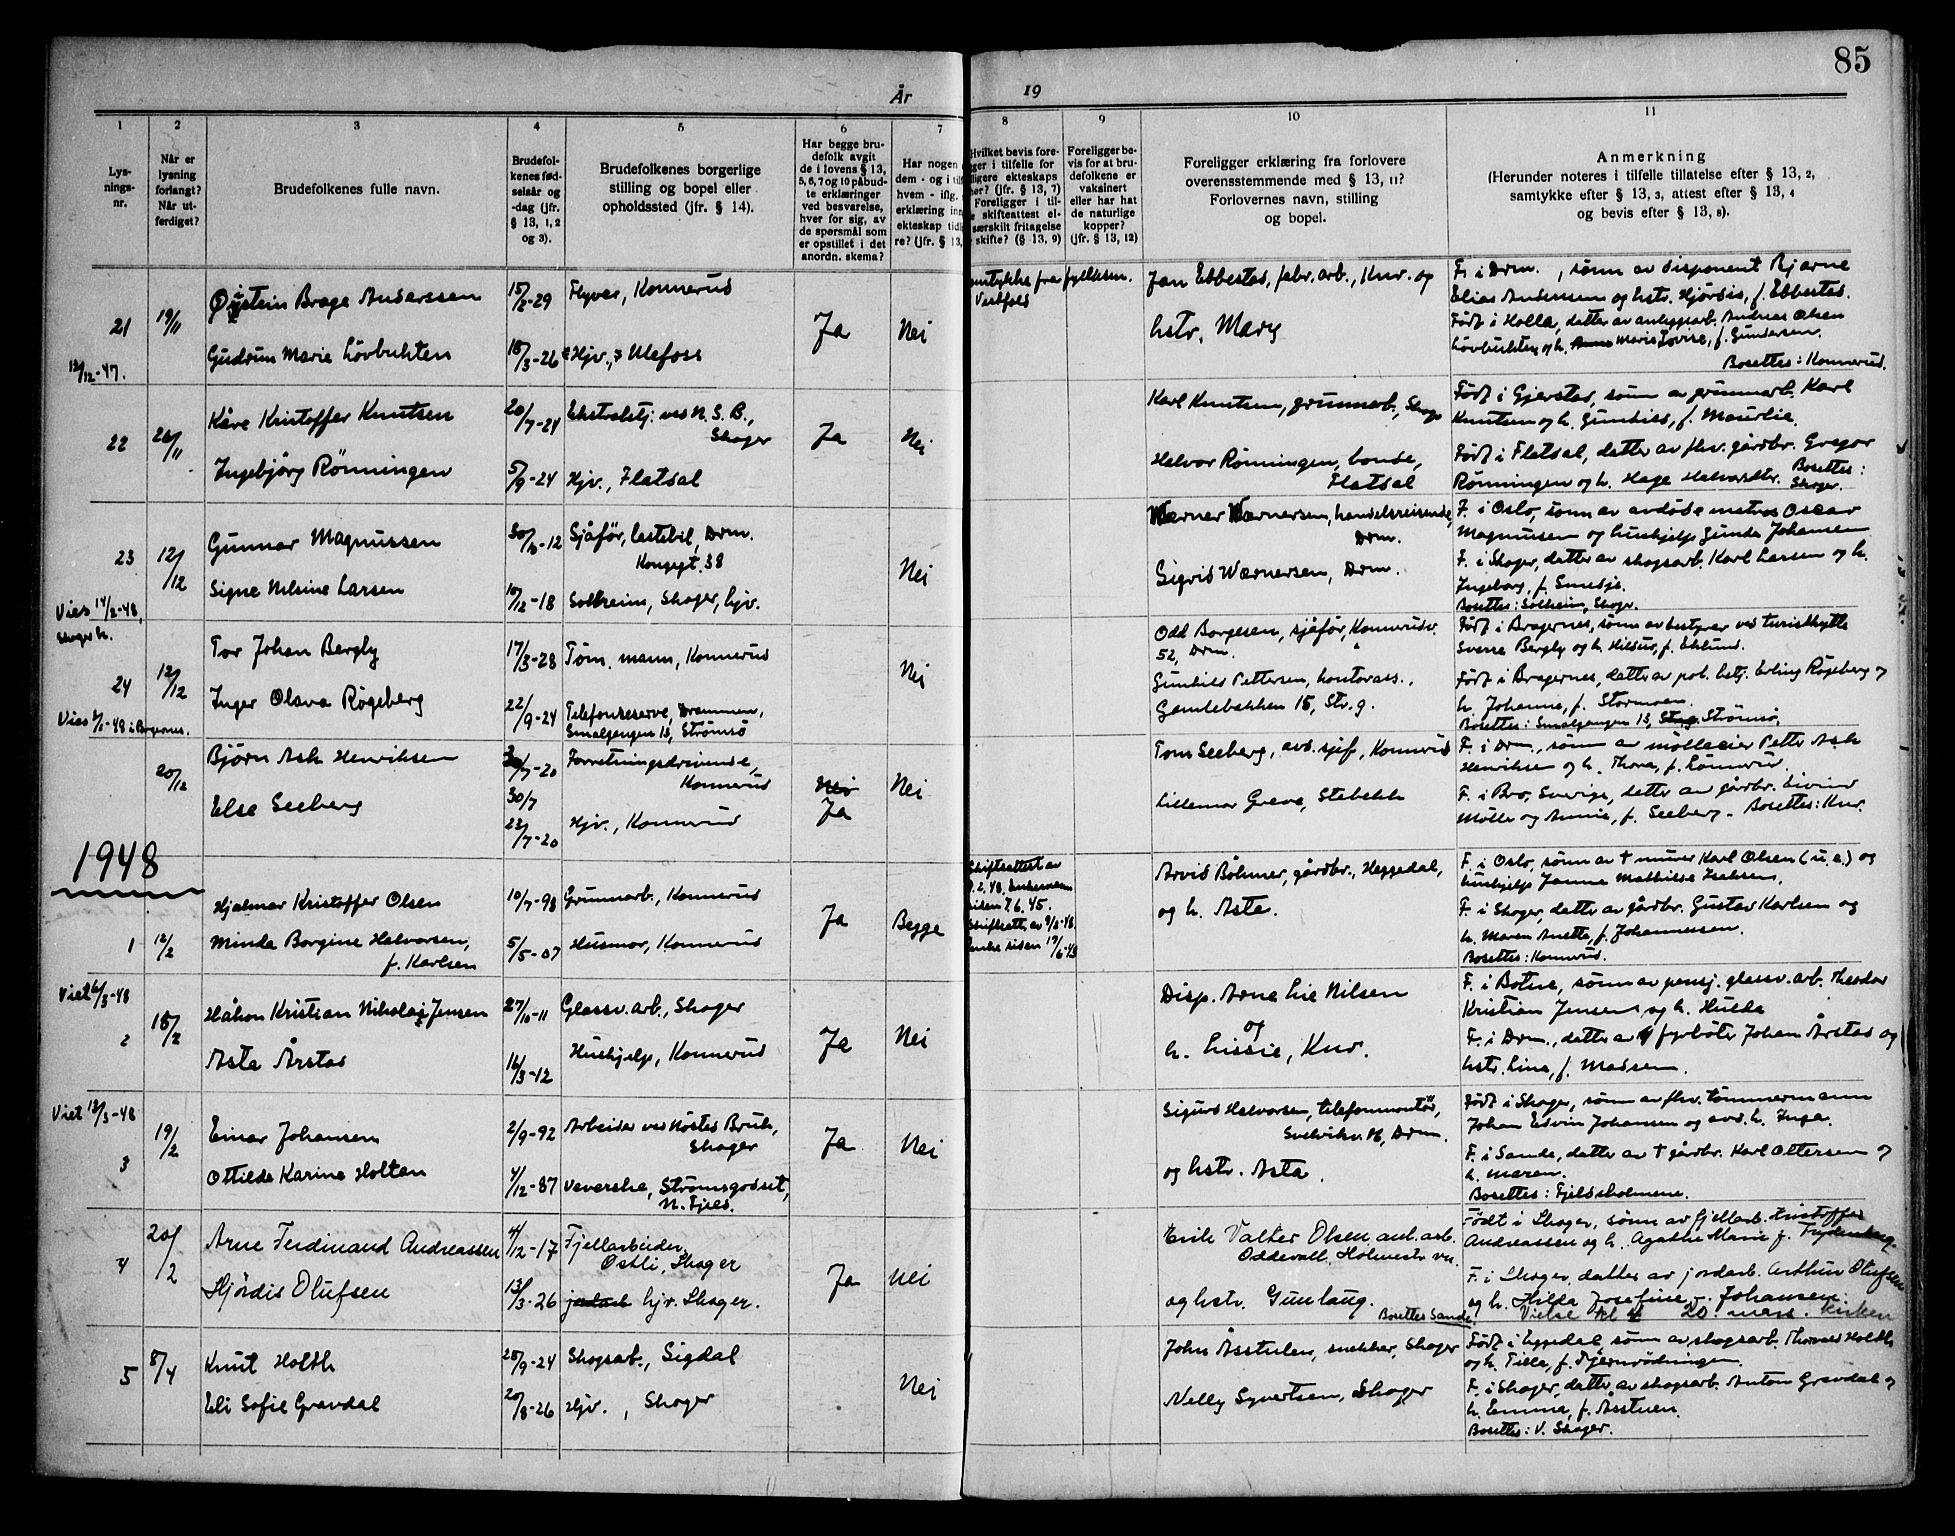 85
År 19
1 2 3 4 5 6 7 8 9 10 11
Lys-
nings-
nr.
Når er
lysning
forlangt?
Når ut-
ferdiget?
Brudefolkenes fulle navn.
Brudefol-
kenes fød-
selsår og
-dag (jfr.
§ 13, 1, 2
og 3).
Brudefolkenes borgerlige
stilling og bopel eller
opholdssted (jfr. § 14).
Har begge bru-
defolk avgit
de i lovens § 13,
5, 6, 7 og 10 påbud-
te erklæringer
ved besvarelse,
hver for sig, av
de spørsmål som
er opstillet i det
anordn. skema?
Har nogen
dem - og i til
hvem - iflg.
erklæring inn
ekteskap tid
re? (jfr. § 13,
Hvilket bevis fore-
ger i tilfelle for
ligere ekteskaps
her? (jfr. § 13, 7)
Foreligger i til-
e skifteattest el-
særskilt fritagelse
skifte? (§ 13, 9)
Foreligger be-
vis for at bru-
defolkene er
vaksinert
eller har hat
de naturlige
kopper?
(jfr. § 13, 12)
Foreligger erklæring fra forlovere
overensstemmende med § 13, 11?
Forlovernes navn, stilling
og bopel.
Anmerkning
(Herunder noteres i tilfelle tillatelse efter § 13, 2,
samtykke efter § 13, 3, attest efter § 13, 4
og bevis efter § 13, 8).
21
12/12-47.
19/11
Øistein Brage Anderssen
Gudrun Marie Lövbukten
15/2-29
18/3-26
Flyver, Konnerud
Hjv., Ulefoss
Ja
Nei
fra fylkesm.
Vestfold
Jan Ebbestad, fabr. arb., Knr. og
hstr. Mary
F. i Drm., sønn av disponent Bjarne
Elias Anderssen og hstr. Hjördis, f. Ebbestad.
Født i Holla, datter av anleggsarb. Andreas Olsen
Lövbukten og h. Marie Lovise, f. Gundersen.
Bosettes: Konnerud.
22
20/11
Kåre Kristoffer Knutsen
Ingebjörg Rönningen
20/7-24
5/9-24
Ekstrabetj. ved N.S.B.,
Skoger
Hjv., Flatdal
Ja
Nei
Karl Knutsen, grunnarb., Skoger
Halvor Rønningen, bonde,
Flatdal
Født i Gjerstad, sönn av grunnarb. Karl
Knutsen og h. Gunhild, f. Maurlia.
Født i Flatdal, datter av fhv. gårdbr. Gregar
Rønningen og h. Hage Halvardtbr. Bosettes:
Skoger.
23
12/12
Gunnar Magnussen
Signe Nilsine Larsen
30/6-12
10/12-18
Sjåför, lastebil, Drm.
Kongegt. 38
Solheim, Skoger, hjv.
Nei
Wærner Wærnersen, handelsreisende,
Drm.
Sigrid Wærnersen, Drm.
F. i Oslo, sønn av avdøde Oscar
Magnussen og hushjelp Gunda Johansen
F. i Skoger, datter av skogsarb. Karl Larsen og h.
Ingeborg, f. Smedje.
Bosettes: Solheim, Skoger.
Vied 14/2-48,
Skoger k.
24
12/12
Tor Johan Bergly
Inger Olava Røgeberg
17/3-28
22/9-24
Tøm. mann, Konnerud
Telefonreserve, Drammen,
Smalgangen 13, Strømsø
Nei
Odd Borgesen, sjåför, Konnerudv.
52, Drm.
Gunhild Pettersen, kontorass.,
Gamlebakken 15, Str.g.
Født i Bragernes, sönn av bestyrer ved turisthytte
Sverre Bergly og h. Hildur, f. Eklund.
Født i Bragernes, datter av pol. betj. Erling Røgeberg og
h. Johanne, f. Stormoen.
Bosettes: Smalgangen 13, Strømsø.
Vied -48 i Bragernes.
20/12
Bjørn Ask Henriksen
Else Seeberg
30/7-20
30/7
23/7-20
Forretningsdrivende,
Konnerud
Hjv., Konnerud
Nei
Ja
Nei
Tom Seeberg, avd. sjef, Konnerud
Lillemor Greve, Stabekk
F. i Drm, sønn av mølleeier Petter Ask
Henriksen og h. Thora, f. Lønnerud.
F. i Bro, Sverige, datter av gårdbr. Eivind
Møller og Annie, f. Seeberg. Bosettes: Knr.
1948
1
12/2
Hjalmar Kristoffer Olsen
Minda Borgine Halvorsen,
f. Karlsen
10/7-98
5/5-07
Grunnarb., Konnerud
Husmor, Konnerud
Ja
Begge
Skifteattest av
.2.48, Enkemann
siden 7.6.45.
Skifteatt. av 9/2-48.
Enke siden 19/6-43
Arvid Böhmer, gårdbr., Heggedal,
og h. Asta.
F. i Oslo, sønn av † murer Karl Olsen (u.e.) og
hushjelp Janna Mathilde Isaksen.
F. i Skoger, datter av gårdbr. Gustav Karlsen og
h. Maren Anette, f. Johannessen.
Bosettes: Konnerud.
Viet 6/3-48
2
18/2
Håkon Kristian Nikolai Jensen
Asta Årstad
27/10-11
16/3-12
Glassv. arb., Skoger
Hushjelp, Konnerud
Ja
Nei
Disp. Arne Lie Nilsen
og
h. Lissie, Knr.
F. i Botne, sønn av pensj. glassv. arb. Theodor
Kristian Jensen og h. Hulda
F. i Drm., datter av fyrbøter Johan Årstad og
hstr. Lina, f. Madsen.
Viet 13/3-48
3
19/2
Einar Johansen
Ottilde Karine Holtan
2/9-92
4/12-87
Arbeider ved Nøsted Bruk,
Skoger
Veverske, Strømsgodset,
N. Fjeld.
Ja
Nei
Sigurd Halvorsen, telefonmontør,
Svelvikv. , Drm.
og hstr. Asta.
Født i Skoger, sønn av fhv. tømmermann
Johan Edvin Johansen og avd. h. Inga.
F. i Sande, datter av † gårdbr. Karl Ottersen og
h. Maren.
Bosettes: Fjeldsholmene.
4
20/2
Arne Ferdinand Andreassen
Hjördis Olufsen
4/12-17
13/3-26
Fjellarbeider,
Østli, Skoger
jordarb hjv. Skoger.
Ja
Nei
Erik Valter Olsen, anl. arb.
Oddevall, Holmestr. vn
og hstr. Gunlaug.
Bosettes Sande.
Født i Skoger, sønn av fjellarb. Kristoffer
Andreassen og h. Agathe Marie f. Frydenhaug.
F. i Skoger, datter av jordarb. Arthur Olufsen
og h. Hilda Josefine f. Johansen.
Vielse kl 4 20. mars. Kirken
5
8/4
Knut Holth
Eli Sofie Gravdal
28/9-24
20/8-26
Skogsarb., Sigdal
Hjv., Skoger
Nei
John Åsstulen, snekker, Skoger
Nelly Syvertsen, Skoger
Født i Eggedal, sønn av skogsarb. Thomas Holth
og h. Tilla, f. Tjernrödningen.
F. i Skoger, datter av skogsarb. Anton Gravdal og
h. Emma, f. Åsstuen.
Bosettes: V. Skoger.